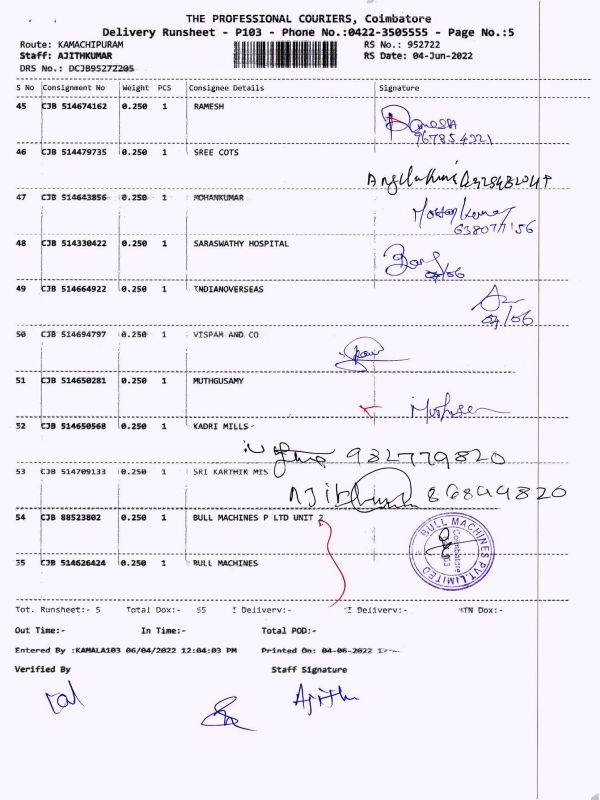 THE PROFESSIONAL COURIERS, Coimbatore
Delivery Runsheet - P103 - Phone No.:0422-3505555 - Page No.:5
Route: KAMACHIPURAM RS No.: 952722
Staff: AJITHKUMAR RS Date: 04-Jun-2022
DRS No.: DCJB95272205
S No Consignment No Weight PCS Consignee Details Signature
45 CJB 514674162 0.250 1 RAMESH
46 CJB 514479735 0.250 1 SREE COTS
47 CJB 514643856 0.250 1 MOHANKUMAR
48 CJB 514330422 0.250 1 SARASWATHY HOSPITAL
49 CJB 514664922 0.250 1 INDIANOVERSEAS
50 CJB 514694797 0.250 1 VISPAM AND CO
51 CJB 514650281 0.250 1 MUTHGUSAMY
52 CJB 514650568 0.250 1 KADRI MILLS
982779820
53 CJB 514709133 0.250 1 SRI KARTHIK MIS
54 CJB 88523802 0.250 1 BULL MACHINES P LTD UNIT 2
BULL MACHINES PVT LIMITED
Coimbatore
35 CJB 514626424 0.250 1 BULL MACHINES
Tot. Runsheet:- 5 Total Dox:- 55 Delivery:- Delivery:- Dox:-
Out Time:- In Time:- Total POD:-
Entered By :KAMALA103 06/04/2022 12:04:03 PM Printed On: 04-06-2022
Verified By Staff Signature
Ajith